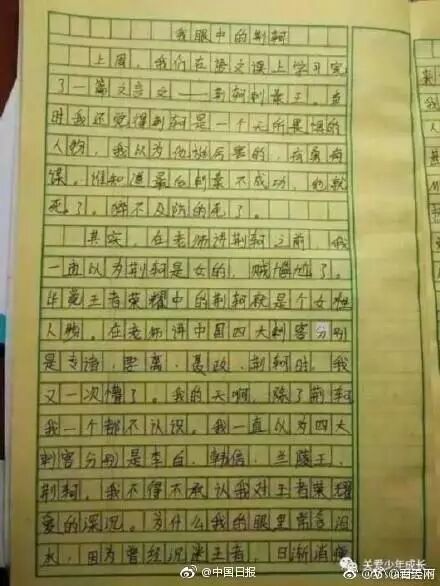 我眼中的荆轲
上周，我们在语文课上学习完
了一篇文言文——荆轲刺秦王。当
时我还觉得荆轲是一个无所畏惧的
人物，我以为他挺厉害的，有勇有
谋。谁知道最后刺秦不成功，他就
死了。猝不及防的死了。
其实，在老师讲荆轲之前，我
一直以为荆轲是女的，贼尴尬了。
毕竟王者荣耀中的荆轲就是个女性
人物。在老师讲中国四大刺客分别
是专诸，要离，聂政，荆轲时，我
又一次懵了。我的天啊，除了荆轲
我一个都不认识。我一直以为四大
刺客分别是李白，韩信，兰陵王，
荆轲。我不得不承认我对王者荣耀
爱的深沉。为什么我的眼里常含泪
水，因为曾经沉迷王者，日渐消瘦
关爱少年成长
@中国日报